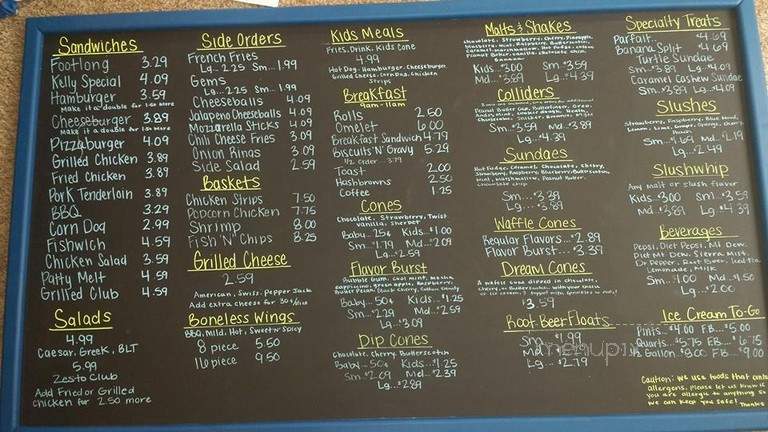 Sandwiches
Footlong 3.29
Kelly Special 4.09
Hamburger 3.59
Make it a double for 1.50 more
Cheeseburger 3.89
Make it a double for 1.50 more
Pizzaburger 4.09
Grilled Chicken 3.89
Fried Chicken 3.89
Pork Tenderloin 3.89
BBQ 3.29
Corn Dog 2.99
Fishwich 4.59
Chicken Salad 3.59
Patty Melt 4.59
Grilled Club 4.59
Salads
4.99
Caesar, Greek, BLT
5.99
Zesto Club
Add Fried or Grilled
chicken for 2.50 more
Side Orders
French Fries
Lg... 2.25 Sm... 1.99
Gems
Lg... 2.25 Sm... 1.99
Cheeseballs 4.09
Jalapeno Cheeseballs 4.09
Mozzarella Sticks 4.09
Chili Cheese Fries 3.09
Onion Rings 3.09
Side Salad 2.59
Baskets
Chicken Strips 7.50
Popcorn Chicken 7.75
Shrimp 8.00
Fish 'N' Chips 8.25
Grilled Cheese
2.59
American, Swiss, Pepper Jack
Add extra cheese for 30¢
Boneless Wings
BBQ, Mild, Hot, Sweet 'n' Spicy
8 piece 5.50
16 piece 9.50
Kids Meals
Fries, Drink, Kids Cone
4.99
Hot Dog, Hamburger, Cheeseburger,
Grilled Cheese, Corn Dog, Chicken
Strips
Breakfast
9am-11am
Rolls 2.50
Omelet 6.00
Breakfast Sandwich 4.79
Biscuits 'N' Gravy 5.29
1/2 order... 3.79
Toast 2.00
Hashbrowns 2.50
Coffee 1.25
Cones
Chocolate, Strawberry, Twist
vanilla, Sherbet
Baby... 25¢ Kids... $1.00
Sm... $1.79 Md... $2.09
Lg... $2.59
Flavor Burst
Baby... 50¢ Kids... $1.25
Sm... $2.29 Md... $2.59
Lg... $3.09
Dip Cones
Chocolate, Cherry, Butterscotch
Baby... 50¢ Kids... $1.25
Sm... $2.09 Md... $2.39
Lg... $2.89
Malts & Shakes
Kids... $3.00 Sm... $3.59
Md... $3.89 Lg... $4.39
Colliders
Sm... $3.59 Md... $3.89
Lg... $4.39
Sundaes
Sm... $3.29
Lg... $3.89
Waffle Cones
Regular Flavors... $2.89
Flavor Burst... $3.39
Dream Cones
$3.59
Root Beer Floats
Sm... $1.99
Md...
Lg... $2.79
Specialty Treats
Parfait... $4.69
Banana Split $4.69
Turtle Sundae
Sm... $3.89 Lg... $4.09
Caramel Cashew Sundae
Sm... $3.89 Lg... $4.09
Slushes
Sm... $1.69 Md... $2.19
Lg... $2.49
Slushwhip
Any malt or slush flavor
Kids... $3.00 Sm... $3.59
Md... $3.89 Lg... $4.39
Beverages
Pepsi, Diet Pepsi, Mt Dew,
Diet Mt Dew, Sierra Mist
Dr Pepper, Root Beer, Iced Tea
Lemonade, Milk
Sm... $1.00 Md... $1.50
Lg... $2.00
Ice Cream To-Go
Pints... $4.00 FB... $5.00
Quarts... $5.75 FB... $6.75
1/2 Gallon... $8.00 FB... $9.00
Caution: We use foods that contain
allergens. Please let us know if
you are allergic to anything so
we can keep you safe! Thanks
menupix